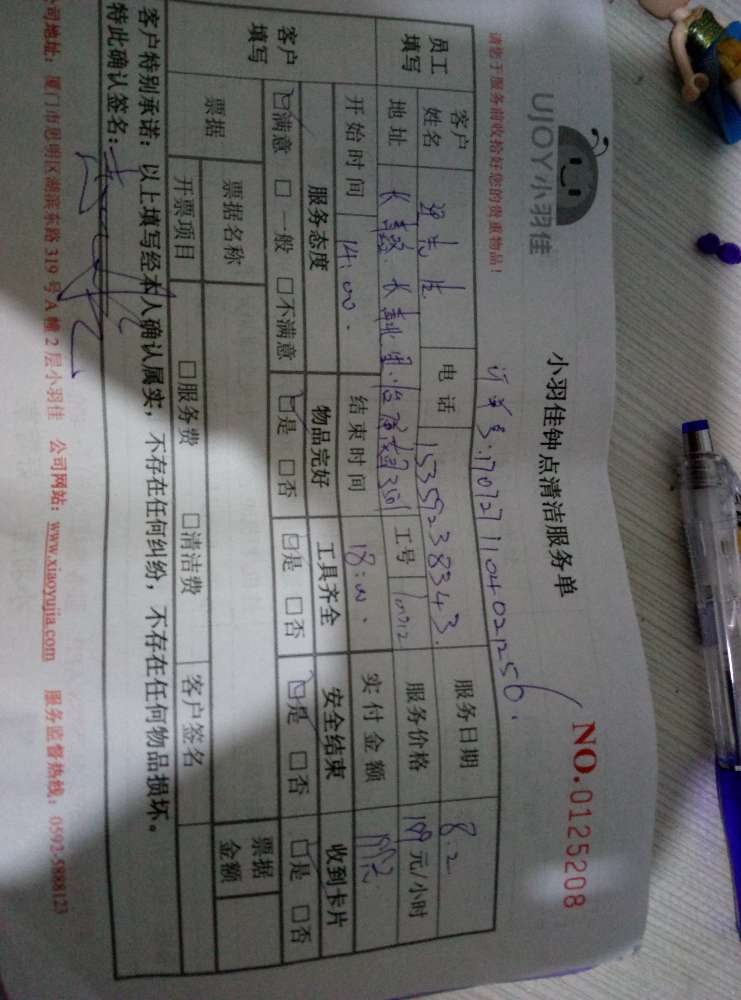 UJOY小羽佳
小羽佳钟点清洁服务单
NO.0125208
请您于服务前收拾好您的贵重物品!
订单号:1707271104021256.
员工填写 客户姓名 先生 电话 15359238343. 服务日期 8.2
地址 长青路 长青北里 工号 服务价格 199元/小时
客户填写 开始时间 14:00. 结束时间 18:00. 实付金额 199元
服务态度 物品完好 工具齐全 安全结束 收到卡片
☑满意 □一般 □不满意 ☑是 □否 ☑是 □否 ☑是 □否 ☑是 □否
票据 票据名称 票据金额
开票项目 □服务费 □清洁费 客户签名
客户特别承诺:以上填写经本人确认属实,不存在任何纠纷,不存在任何物品损坏。
特此确认签名:
公司地址:厦门市思明区湖滨东路319号A幢2层小羽佳 公司网站:www.xiaoyujia.com 服务监督热线:0592-5888123